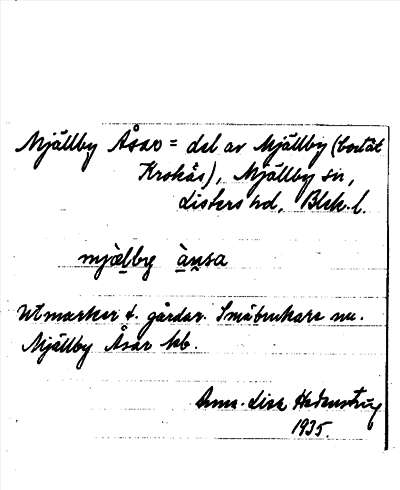 Mjällby Åsar = del av Mjällby (bortåt
Krokås), Mjällby sn,
Listers hd, Blek. l.
mjæ̀lby àu̯sa
Utmarker t. gårdar. Småbrukare nu.
Mjällby Åsar kb.
Anna-Lisa
1935.